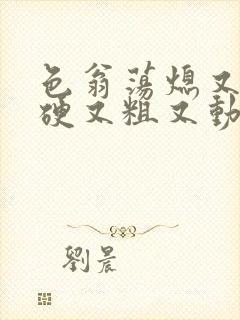 色翁荡熄又
硬又粗又動
劉晨